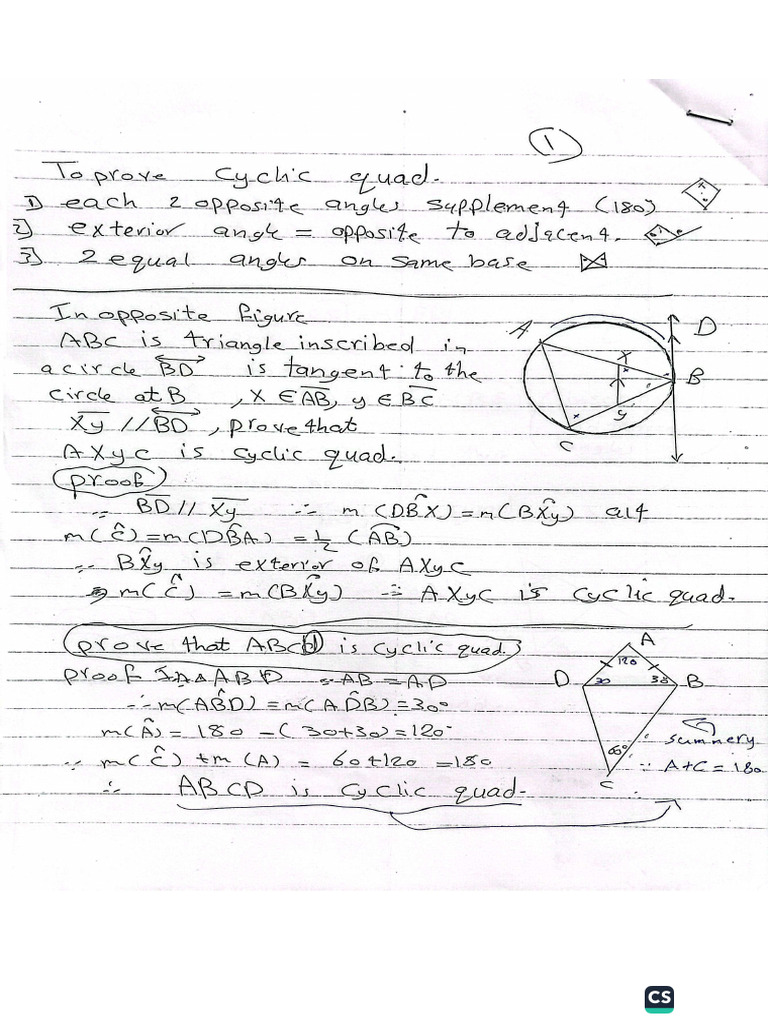 ①
To prove Cyclic quad.
1) each 2 opposite angles supplement (180)
2) exterior angle = opposite to adjacent.
3) 2 equal angles on same base
In opposite figure
ABC is triangle inscribed in
a circle BD is tangent to the
circle at B , X ∈ AB, y ∈ BC
Xy // BD , prove that
A X y C is cyclic quad.
A
D
X
B
y
C
proof
∵ BD // Xy ∴ m (DB̂X) = m(BX̂y) alt
m(Ĉ) = m(DB̂A) = 1/2 (AB)
∵ BX̂y is exterior of AXyC
m(Ĉ) = m(BX̂y) ∴ AXyC is cyclic quad.
prove that ABCD is cyclic quad.
proof In Δ ABD ∵ AB = AD
∴ m(AB̂D) = m(AD̂B) = 30°
m(Â) = 180 - (30+30) = 120°
∵ m(Ĉ) + m(A) = 60+120 = 180
∴ ABCD is cyclic quad.
A
120
D
30
30
B
60°
C
summery
∵ A+C = 180
CS